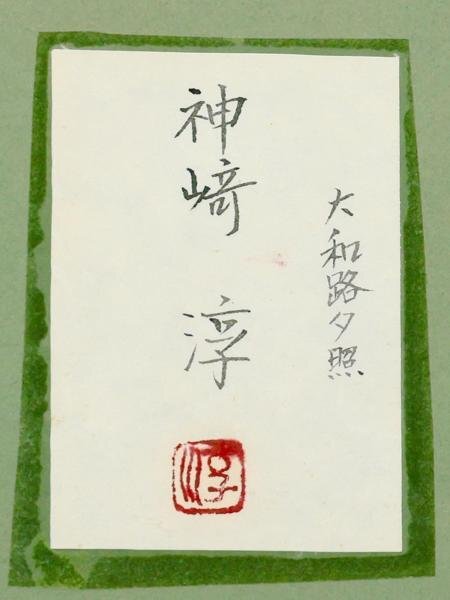 大和路夕照
神﨑 淳
淳